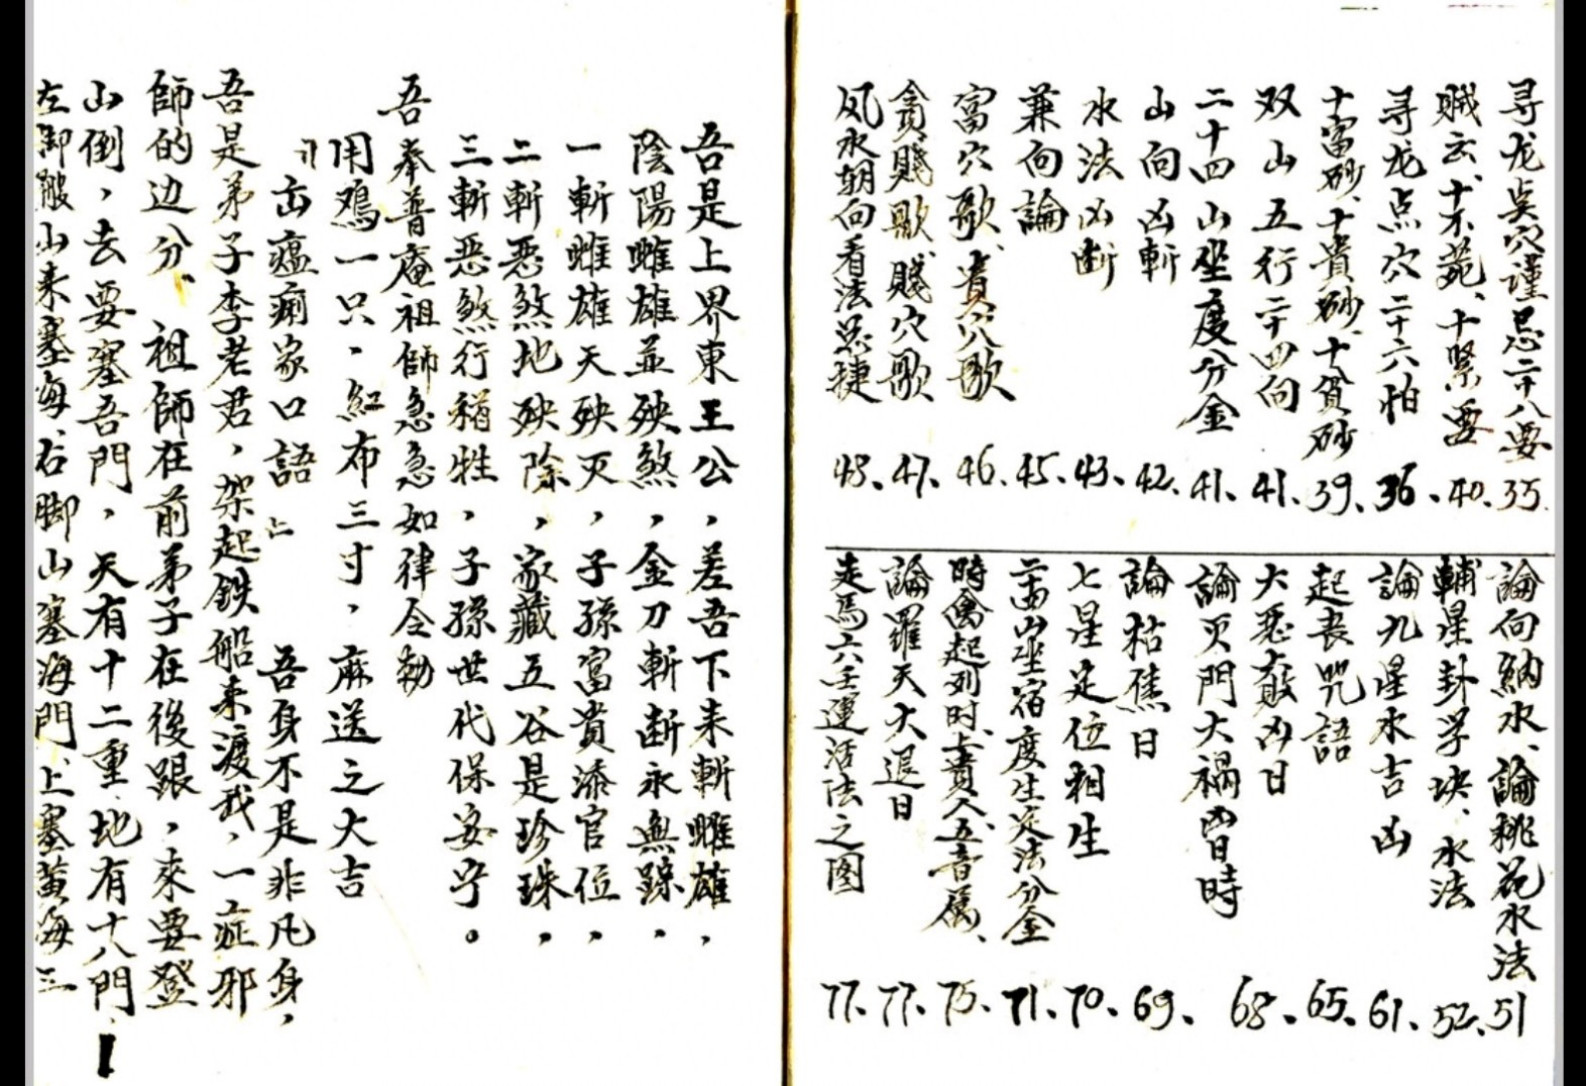 寻龙点穴谨忌二十八要 35.
贼云、十不葬、十紧要 40.
寻龙点穴二十六怕 36.
十富砂、十貴砂、十貧砂 39.
双山五行二十四向 41.
二十四山坐度分金 41.
山向凶斬 42.
水法凶断 43.
兼向論 45.
富穴歌、貴穴歌 46.
貪賤歌、賤穴歌 47.
风水朝向看法总捷 48.
論向納水、論桃花水法 51
輔星卦学块、水法 52.
論九星水吉凶 61.
起丧咒語 65.
大惡敢凶日 68.
論灭門大禍凶日時
論枯焦日 69.
七星定位相生 70.
二十四山坐宿度生定法分金 71.
時禽起列时、土貴人、五音屬、 75.
論羅天大退日 77.
走馬六壬運活法之图 77.
吾是上界東王公，差吾下来斬雌雄，
陰陽雌雄並殃煞，金刀斬断永無踪，
一斬雌雄天殃灭，子孫富貴添官位，
二斬惡煞地殃除，家藏五谷是珍珠，
三斬惡煞行稍牲，子孫世代保安宁。
吾奉普庵祖師急急如律令勅
用鸡一只，紅布三寸，麻送之大吉
出瘟痢家口語 吾身不是非凡身，
吾是弟子李老君，架起鉄船来渡我，一症邪
師的边分、祖師在前弟子在後跟，來要登
山倒，去要塞吾門，天有十二重、地有十八門
左脚敲山来塞海、右脚山塞海門、上塞黄海三
1